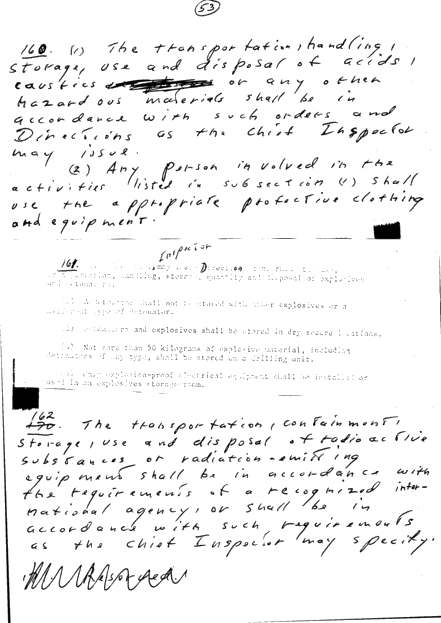 53
160. (1) The transportation, handling,
storage, use and disposal of acids,
caustics or any other
hazardous materials shall be in
accordance with such orders and
Directions as the Chief Inspector
may issue.
(2) Any person involved in the
activities listed in subsection (1) shall
use the appropriate protective clothing
and equipment.
Inspector
161. may Direction
handling, storage, quantity and disposal of explosives
(2) A detonator shall not be stored with other explosives or a
type of detonator.
and explosives shall be stored in dry secure locations.
Not more than 50 kilograms of explosive material, including
detonators of any type, shall be stored on a drilling unit.
explosion-proof electrical equipment shall be installed or
used in an explosives storage room.
162
170. The transportation, containment,
storage, use and disposal of radioactive
substances or radiation-emitting
equipment shall be in accordance with
the requirements of a recognized inter-
national agency, or shall be in
accordance with such requirements
as the Chief Inspector may specify.
Reserved